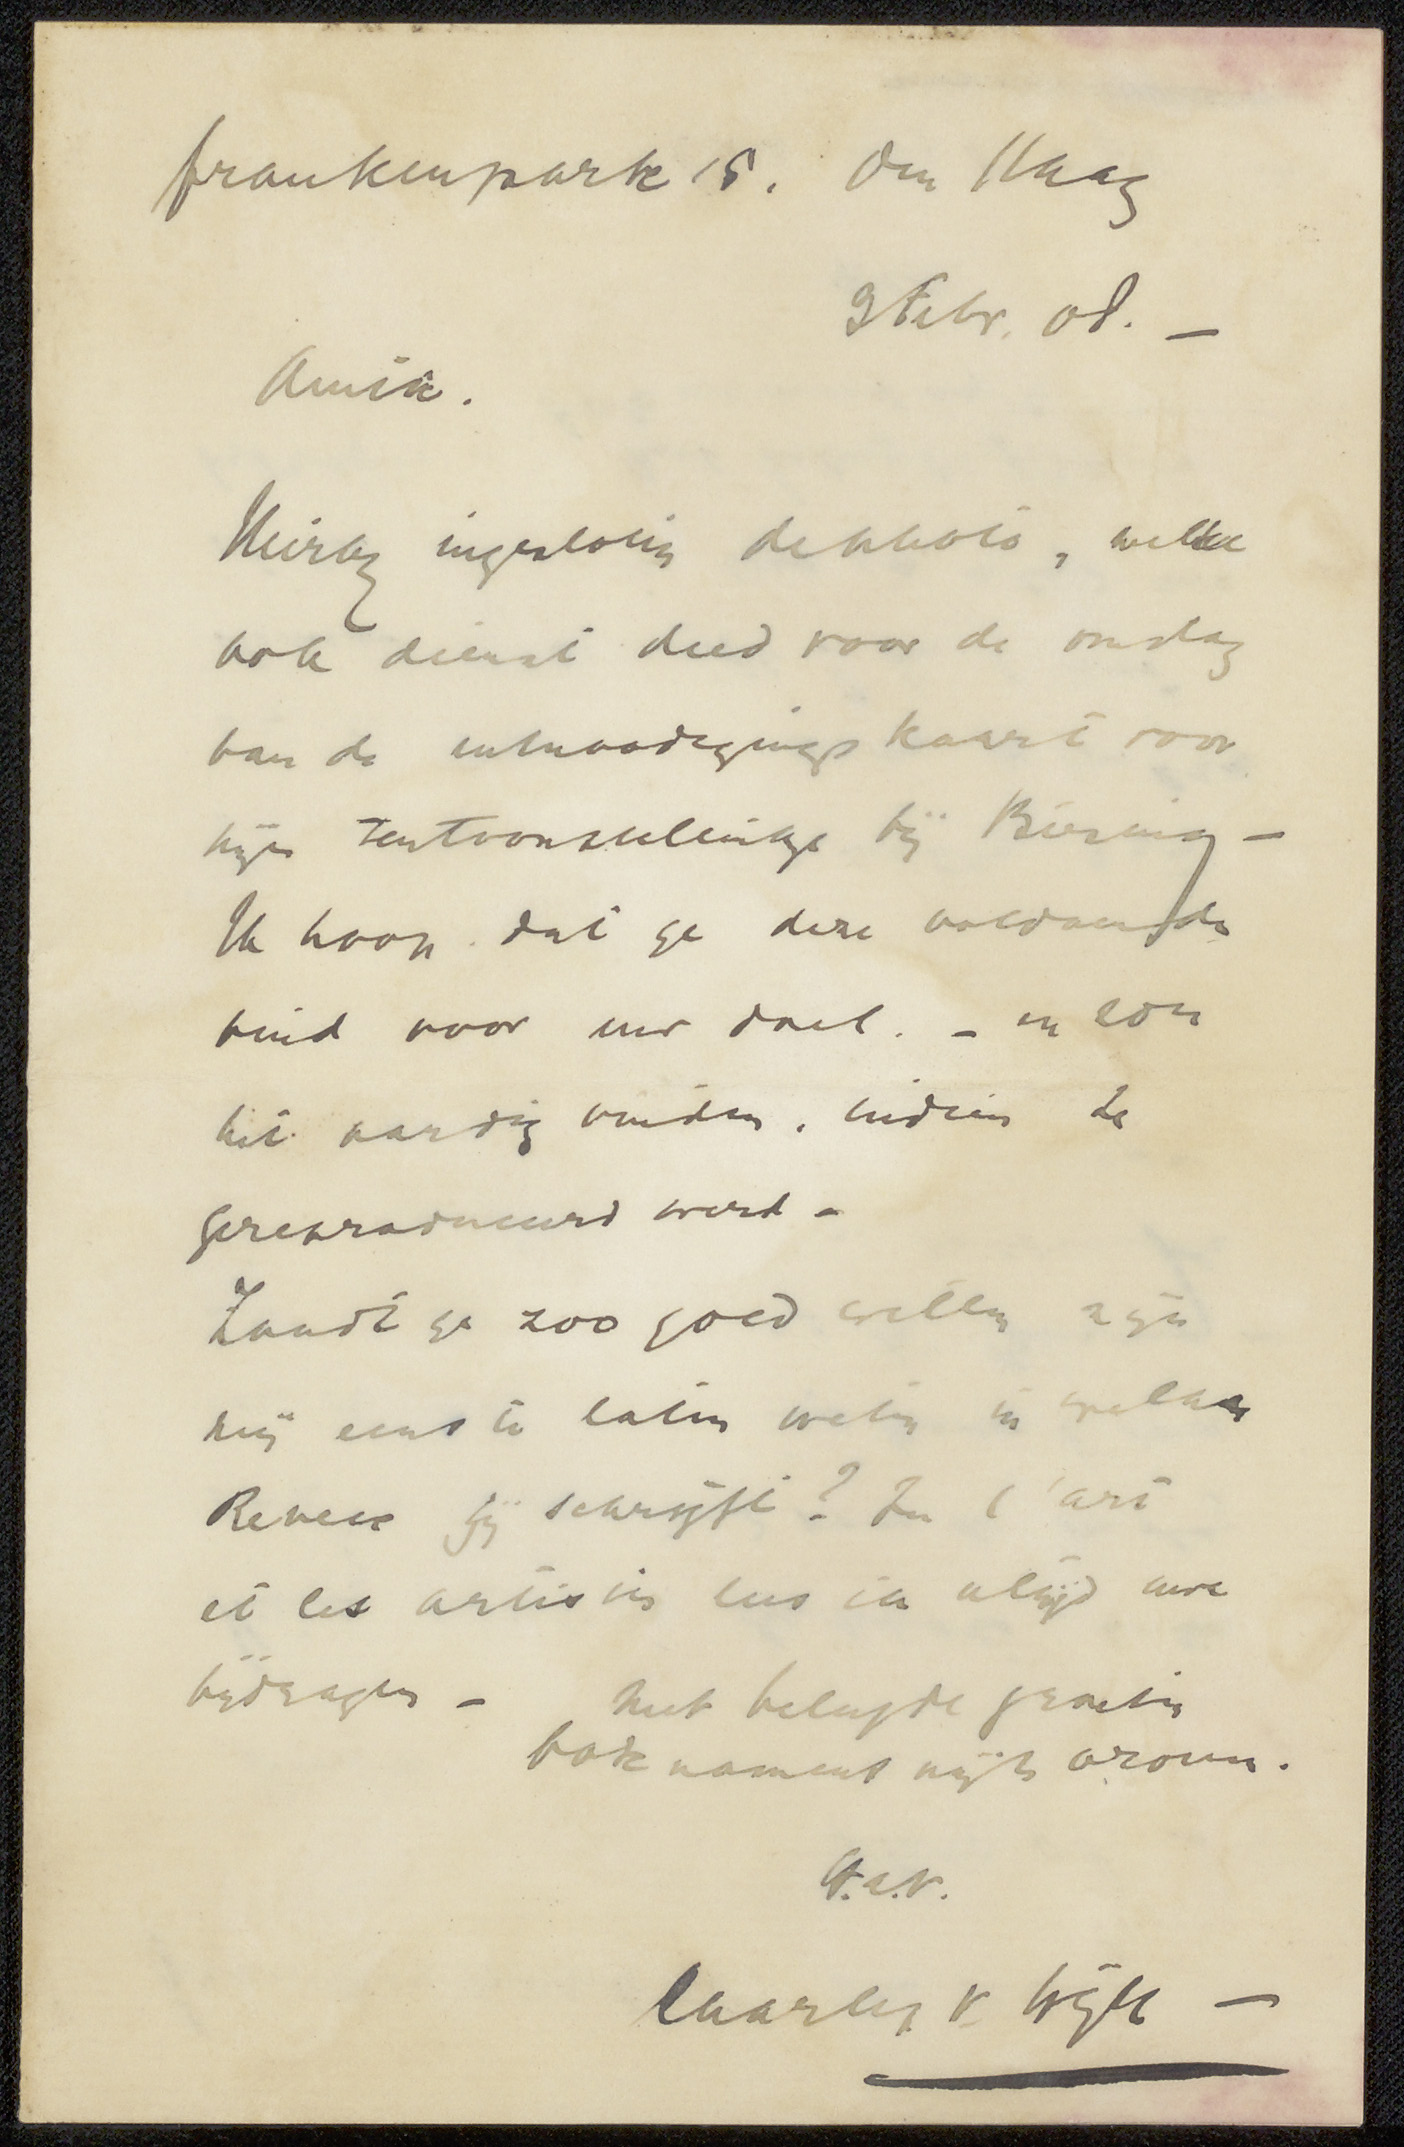 frankenpark 15. den Haag
9 Febr. 08. –
Amice.
Hierby ingesloten de photo, welke
ook dienst deed voor de omslag
van de uitnoodigings kaart voor
mijn tentoonstelling bij Biesing –
Ik hoop dat ge deze voldoende
vind voor uw doel. – en zou
het aardig vinden, indien ze
gereproduceerd werd –
Zoudt ge zoo goed willen zijn
mij eens te laten weten in welke
Revues gij schrijft? In l'art
et les artistes lees ik altijd uwe
bijdragen – Met beleefde groeten
ook namens mijn vrouw.
t.a.v.
Charles v. Wijk –